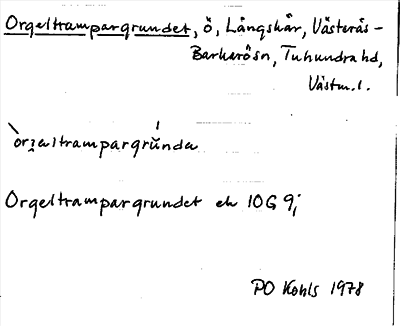 Orgeltrampargrundet, ö, Långskär, Västerås-
Barkarösn, Tuhundra hd,
Västm.l.
òrʒaltrampargrŭ́nda
Orgeltrampargrundet ek 10G 9j
PO Kohls 1978